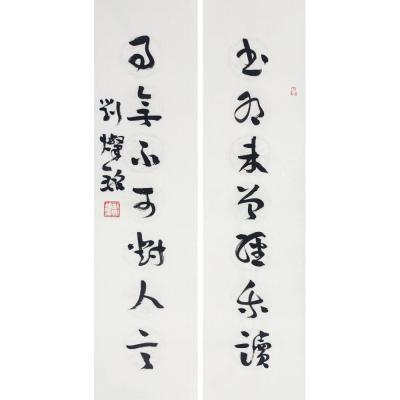 書有未曾經我讀
事無不可對人言
劉燦銘